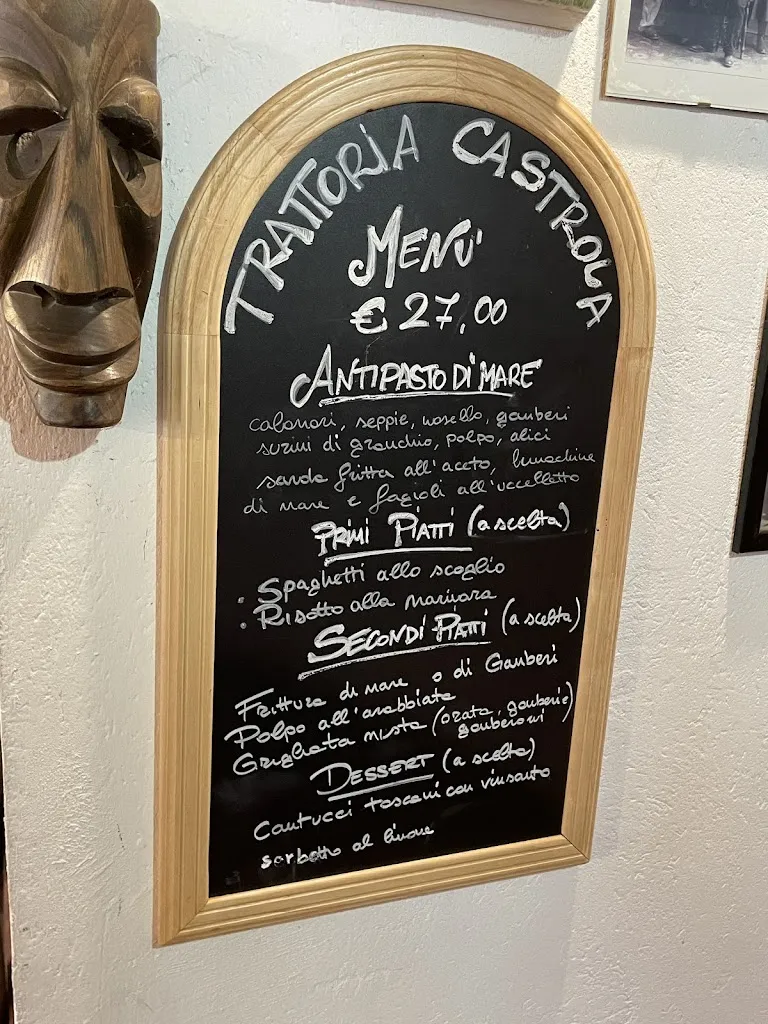 TRATTORIA CASTROLA
MENU'
€ 27,00
ANTIPASTO DI MARE
calamari, seppie, nasello, gamberi
surimi di granchio, polpo, alici
sarda fritta all'aceto, lumachine
di mare e fagioli all'uccelletto
PRIMI PIATTI (a scelta)
. Spaghetti allo scoglio
. Risotto alla marinara
SECONDI PIATTI (a scelta)
Frittura di mare o di Gamberi
Polpo all'arabbiata
Grigliata mista (orata, gamberi e
gamberoni)
DESSERT (a scelta)
Cantucci toscani con vinsanto
sorbetto al limone